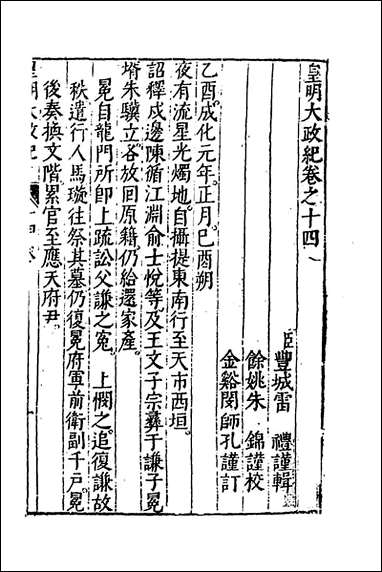 皇明大政紀卷之十四
臣豐城雷　禮謹輯
餘姚朱　錦謹校
金谿閔師孔謹訂
乙酉成化元年正月己酉朔
夜有流星光燭地自攝提東南行至天市西垣
詔釋戍邊陳循江淵俞士悅等及王文子宗彝于謙子冕
壻朱驥立各放回原籍仍給還家產
冕自龍門所卽上疏訟父謙之冤　上憫之追復謙故
秩遣行人馬璇往祭其墓仍復冕府軍前衛副千戶冕
後奏換文階累官至應天府尹
皇明大政紀